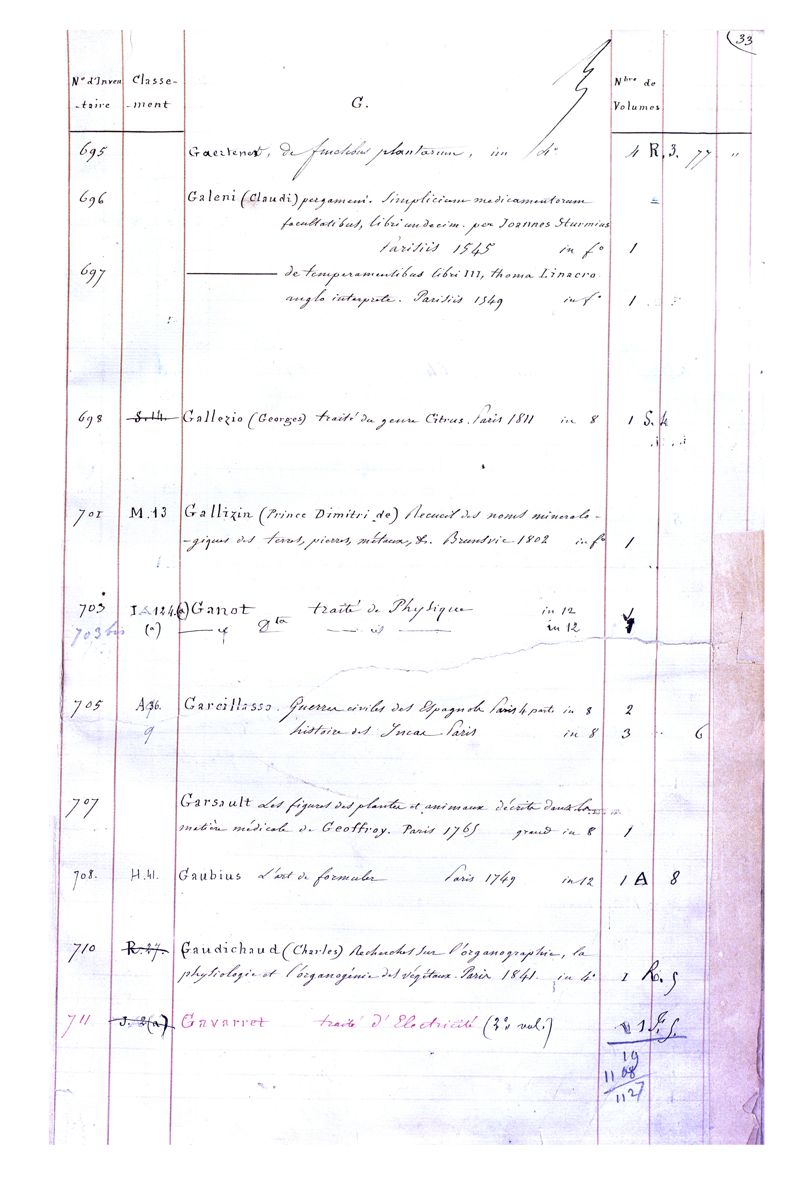 33
N° d'Inven Classe- Nbre de
-taire -ment G. Volumes
695 Gaertener, de fructibus plantarum, in 4° 4 R, 3. 77 "
696 Galeni (Claudi) pergameni. Simplicium medicamentorum
facultatibus, libri undecim. per Joannes Sturmius
Parisiis 1545 in f° 1
697 ——— de temperamentibus libri III, thoma Linacro
anglo interprete. Parisiis 1549 in f° 1
698 S.14. Gallezio (Georges) traité du genre Citrus. Paris 1811 in 8 1 S. 4
701 M.13 Gallizin (Prince Dimitri de) Recueil des noms mineralo-
-giques des terres, pierres, métaux, &. Brunsvic 1802 in f° 1
703 I A 124.(a) Ganot traité de Physique in 12 1
703 bis (a) — — Dta — id — in 12 1
705 A.36. Garcillasso. Guerres civiles des Espagnols Paris 4 parte in 8 2
9 histoire des Incas Paris in 8 3 6
707 Garsault Les figures des plantes et animaux décrits dans la
matière médicale de Geoffroy. Paris 1765 grand in 8 1
708. H.41. Gaubius L'art de formuler Paris 1749 in 12 1 A 8
710 R.27. Gaudichaud (Charles) Recherches sur l'organographie, la
physiologie et l'organogénie des végétaux. Paris 1841. in 4° 1 R. 5
711 J.2(a) Gavarret traité d'Electricité (2° vol.) 1 F. 5.
19
1108
1127